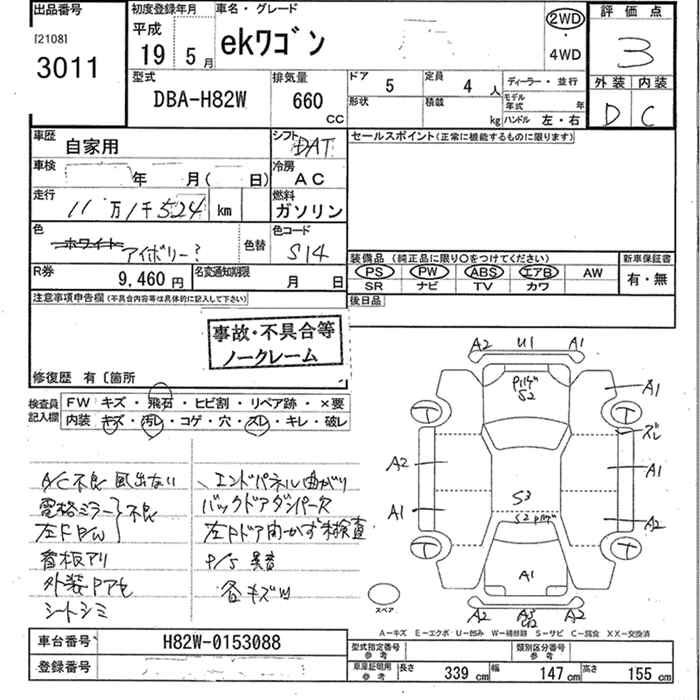 出品番号
[2108]
3011
初度登録年月
平成
19 5 月
車名・グレード
ekワゴン
2WD
・
4WD
評価点
3
外装 内装
D C
型式
DBA-H82W
排気量
660
CC
ドア 5
定員 4 人
形状
積載 kg
ディーラー・並行
モデル年式 年
ハンドル 左・右
車歴 自家用
シフト DAT
車検 年 月( 日)
冷房 AC
走行 11万1千524 km
燃料 ガソリン
色 ホワイト アイボリー?
色替
色コード S14
R券 9,460円
名変通知期限 月 日
セールスポイント(正常に機能するものに限ります)
装備品 (純正品に限り○をつけてください)
PS PW ABS エアB AW
SR ナビ TV カワ
新車保証書
有・無
後日品
注意事項申告欄(不具合内容等は具体的に記入して下さい)
事故・不具合等
ノークレーム
修復歴 有〔箇所
検査員記入欄
FW キズ・飛石・ヒビ割・リペア跡・×要
内装 キズ・汚レ・コゲ・穴・ズレ・キレ・破レ
A/C不良 風出ない
電格ミラー}不良
左F P/W
看板アリ
外装Pアセ
シートシミ
エンドパネル曲がり
バックドアダンパーヌケ
左Fドア開かず未検査
P/S 異音
各キズ凹
A2 U1 A1
S2
A1
ズレ
A2
A1
A1
A2
S3
S2
A1
A2 A3 A2
スペア
A-キズ E-エクボ U-凹み W-補修跡 S-サビ C-腐食 XX-交換済
車台番号 H82W-0153088
登録番号
型式指定番号 参考
類別区分番号 参考
車庫証明用 参考
長さ 339 cm 幅 147 cm 高さ 155 cm